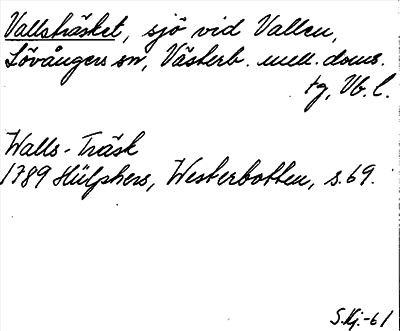 Vallsträsket, sjö vid Vallen,
Lövångers sn, Västerb. mell. doms.
tg, Vb. l.
Walls-Träsk
1789 Hülphers, Westerbotten, s. 69.
S.Kj.-61